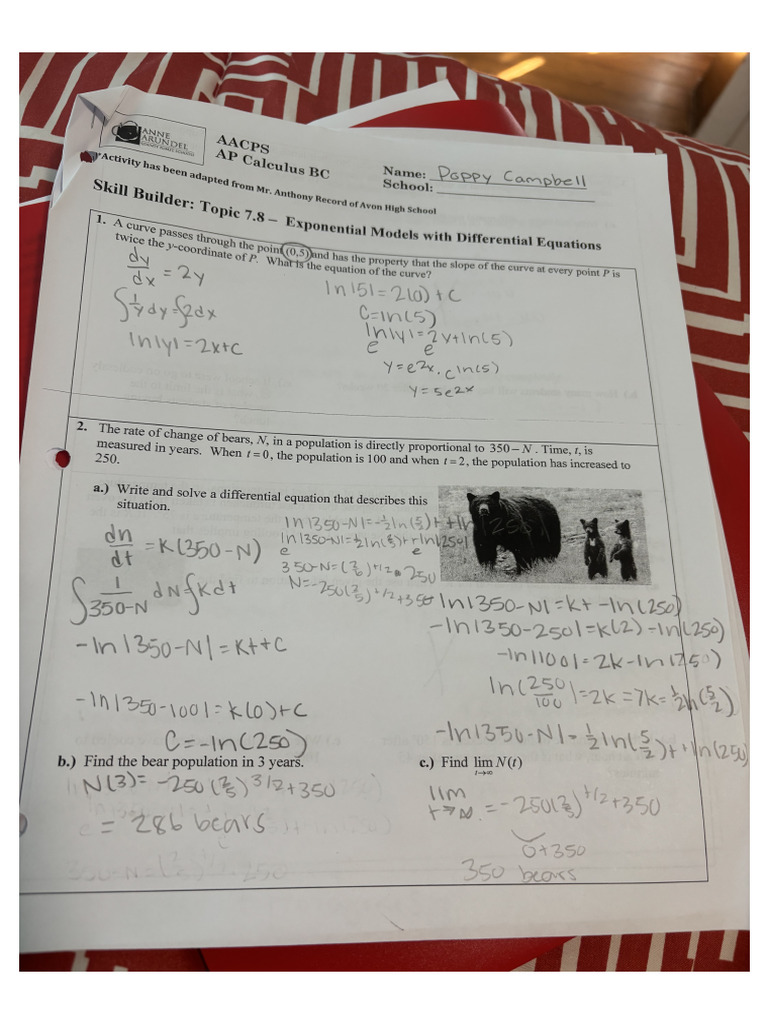 ANNE
ARUNDEL
COUNTY PUBLIC SCHOOLS
AACPS
AP Calculus BC
Name: Poppy Campbell
School:
*Activity has been adapted from Mr. Anthony Record of Avon High School
Skill Builder: Topic 7.8 – Exponential Models with Differential Equations
1. A curve passes through the point (0,5) and has the property that the slope of the curve at every point P is
twice the y-coordinate of P. What is the equation of the curve?
dy/dx = 2y
∫1/y dy=∫2dx
ln|y|=2x+c
ln|5|=2(0)+c
C=ln(5)
ln|y|=2x+ln(5)
e e
y=e^2x · e^ln(5)
y=5e^2x
2. The rate of change of bears, N, in a population is directly proportional to 350 – N. Time, t, is
measured in years. When t = 0, the population is 100 and when t = 2, the population has increased to
250.
a.) Write and solve a differential equation that describes this
situation.
dn/dt = K(350-N)
∫1/(350-N) dN=∫Kdt
-ln|350-N|=Kt+C
-ln|350-100|=K(0)+C
C=-ln(250)
ln|350-N|=-½ln(5/2)t+ln(250)
e e
350-N=(2/5)^t/2 · 250
N=-250(2/5)^t/2+350
-ln|350-N|=kt-ln(250)
-ln|350-250|=k(2)-ln(250)
-ln|100|=2k-ln(250)
ln(250/100)=2k=7k=½ln(5/2)
-ln|350-N|=½ln(5/2)t+ln(250)
b.) Find the bear population in 3 years.
N(3)=-250(2/5)^3/2+350
= 286 bears
c.) Find lim N(t)
t→∞
lim t→∞ =-250(2/5)^t/2+350
0+350
350 bears